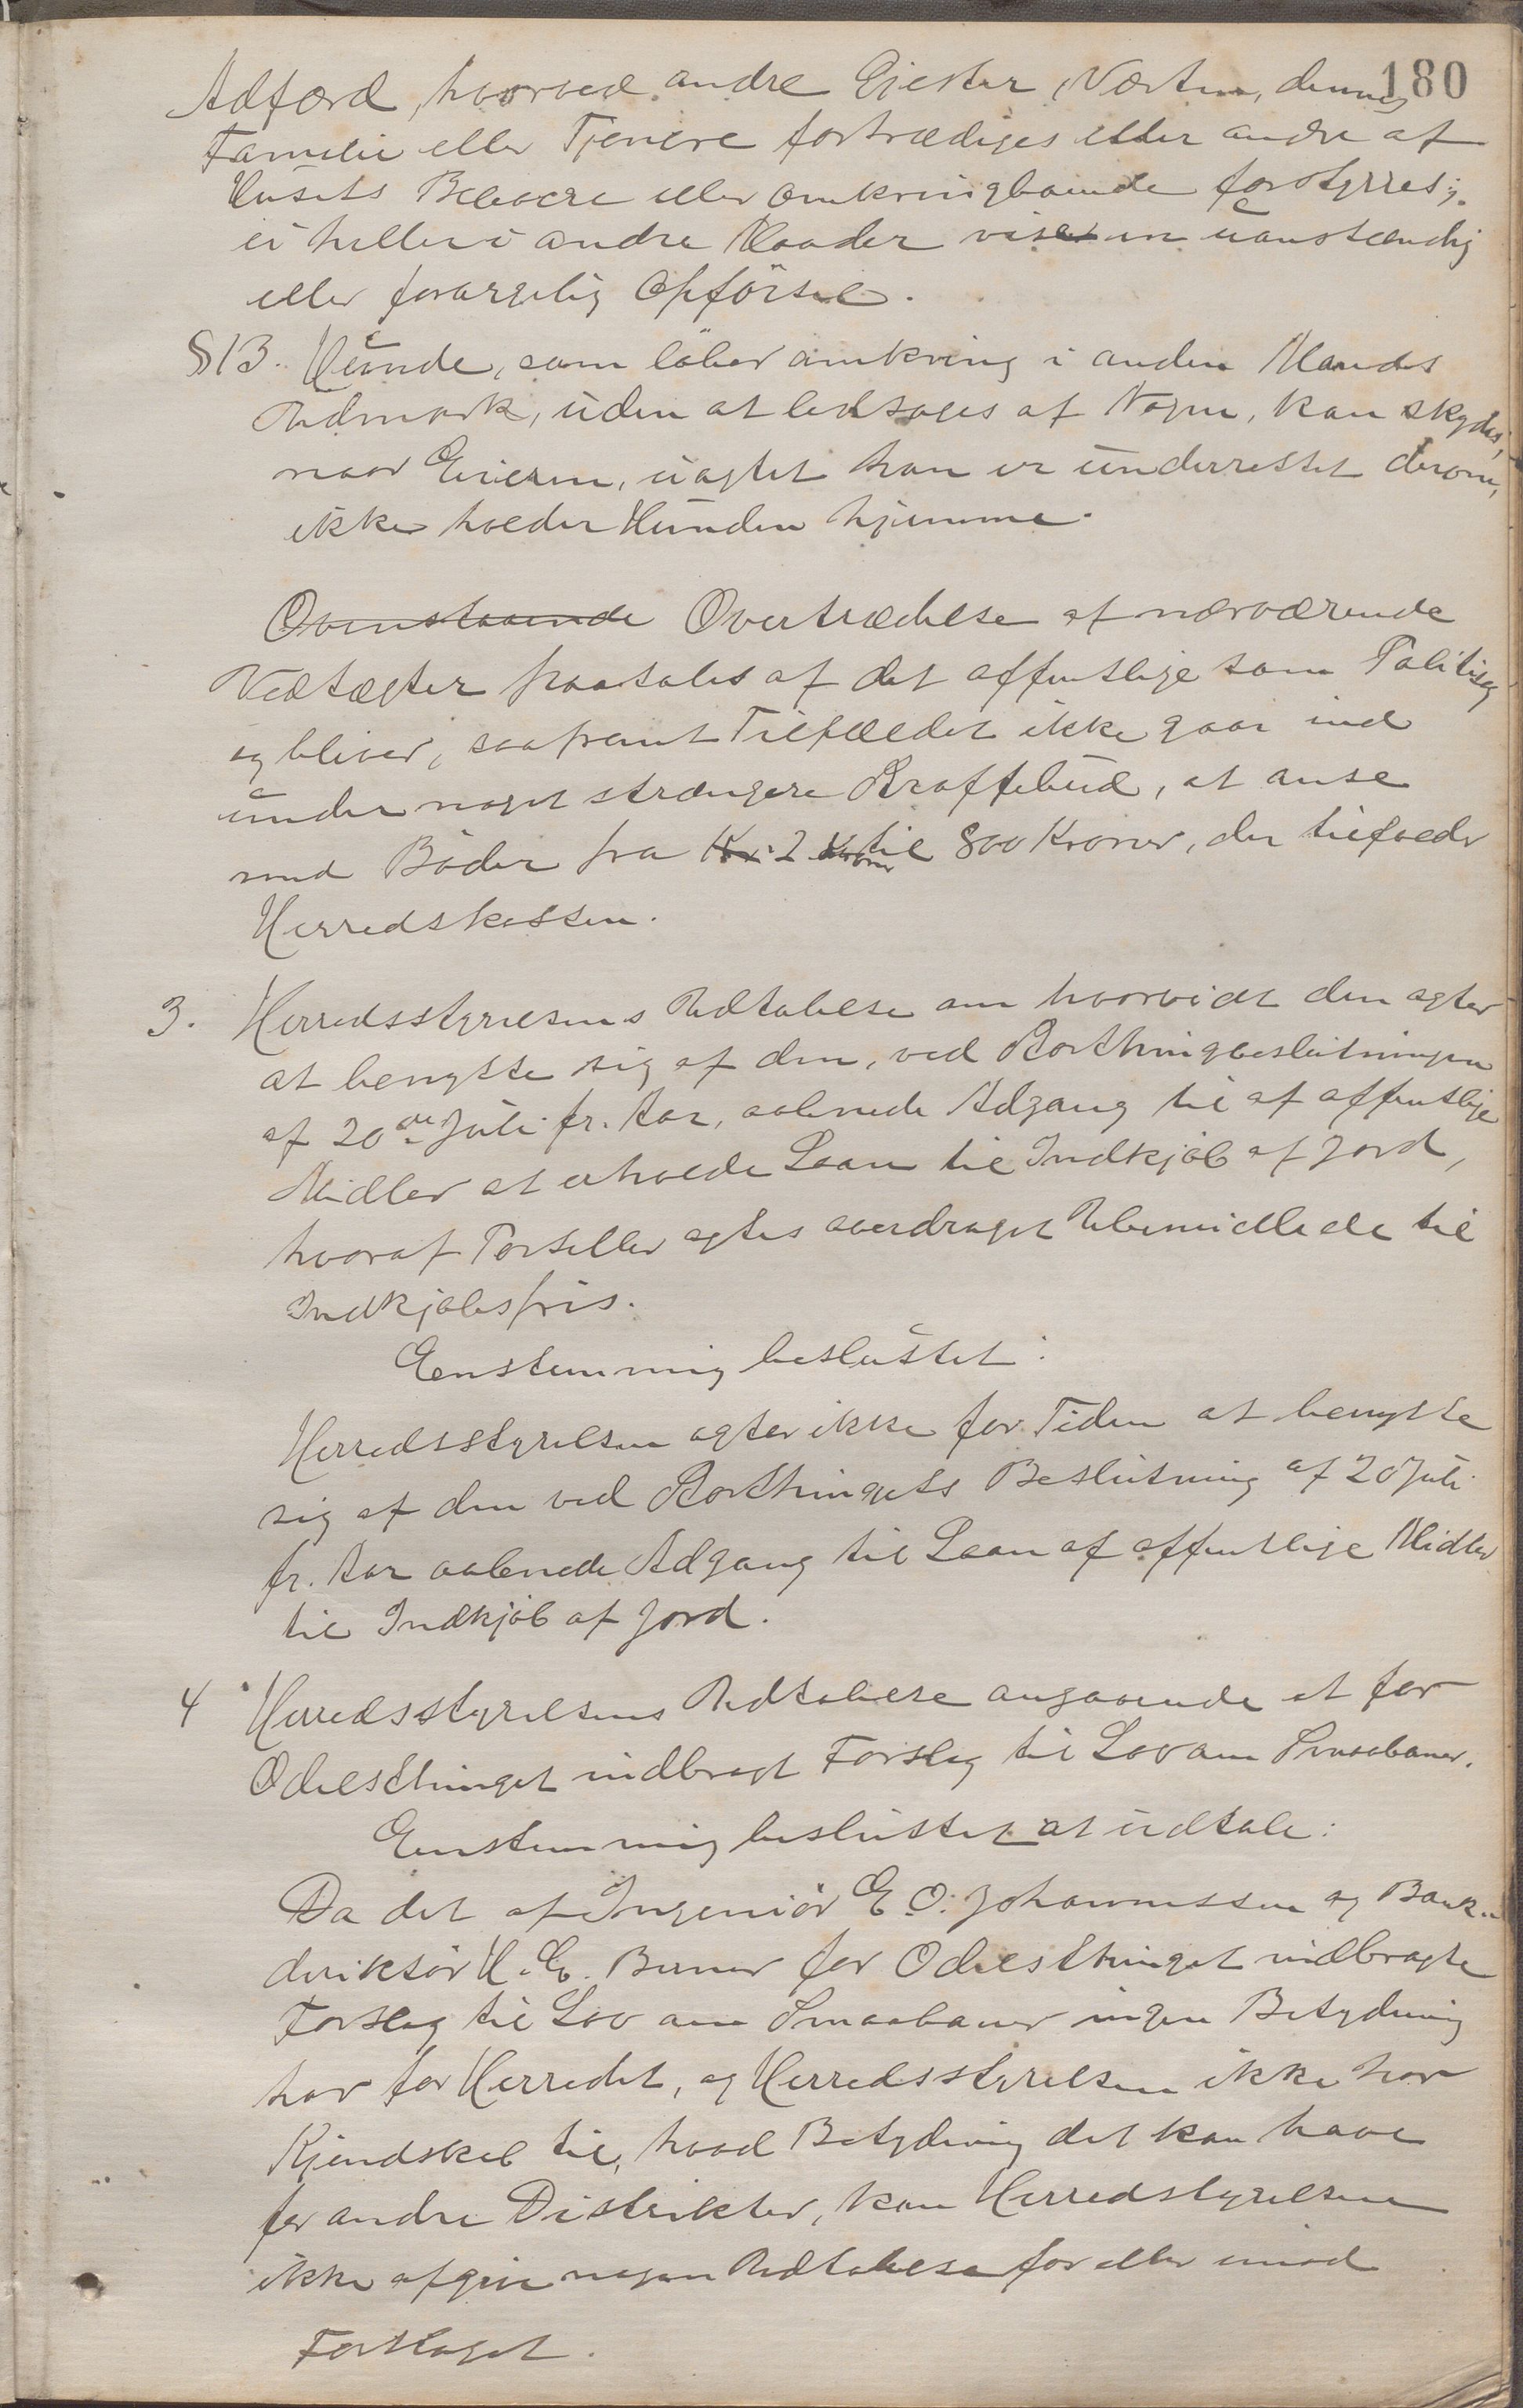 180
Adfærd, hvorved andre Gjester, Verten, dennes
Familie eller Tjenere fortrædiges eller andre af
Husets Beboere eller omkringboende forstyrres;
ei heller i andre Maader vises en uanstændig
eller forargelig Opförsel.
§13. Hunde, som löber omkring i anden Mands
Udmark, uden at ledsages af Nogen, kan skydes,
naar Eieren, uagtet han er underrettet derom,
ikke holder Hunden hjemme.
Ovenstaaende Overtrædelse af nærværende
Vedtægter paatales af det offentlige som Politisag
og bliver, saafremt Tilfældet ikke gaar ind
under noget strængere Straffebud, at anse
med Böder fra Kr. 2 Kroner til 800 Kroner, der tilfalder
Herredskassen.
3. Herredsstyrelsens Udtalelse om hvorvidt den agter
at benytte sig af den, ved Storthingsbeslutningen
af 20de Juli fr. Aar, aabnede Adgang til af offentlige
Midler at erholde Laan til Indkjöb af Jord,
hvoraf Parseller agtes overdraget Ubemidlede til
Indkjöbspris.
Eenstemmig besluttet:
Herredsstyrelsen agter ikke for Tiden at benytte
sig af den ved Storthingets Beslutning af 20 Juli
fr. Aar aabnede Adgang til Laan af offentlige Midler
til Indkjöb af Jord.
4 Herredsstyrelsens Udtalelse angaaende et for
Odelsthinget indbragt Forslag til Lov om Smaabaner.
Eenstemmig besluttet at udtale:
Da det af Ingeniör E. O. Johannessen og Bank-
direktör H. E. Berner for Odelsthinget indbragte
Forslag til Lov om Smaabaner ingen Betydning
har for Herredet, og Herredsstyrelsen ikke har
Kjendskab til, hvad Betydning det kan have
for andre Distrikter, kan Herredsstyrelsen
ikke afgive nogen Udtalelse for eller imod
Forslaget.